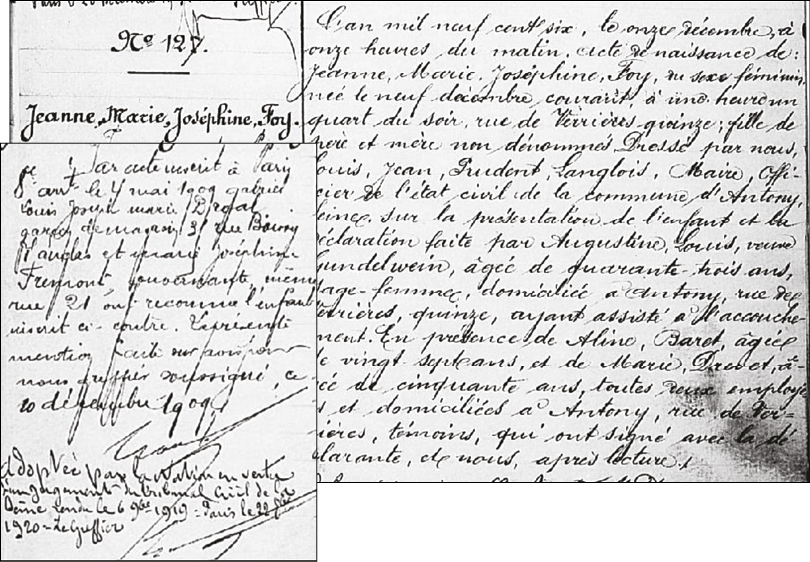 Nº 127.
Jeanne, Marie, Joséphine, Foy.
L'an mil neuf cent six, le onze décembre, à
onze heures du matin. acte de naissance de:
Jeanne, Marie, Joséphine, Foy, du sexe féminin
née le neuf décembre courant, à une heure un
quart du soir, rue de Verrières quinze; fille de
père et mère non dénommés. Dressé par nous,
Louis, Jean, Prudent, Langlois, Maire, Offi-
cier de l'état civil de la commune d'Antony,
Seine, sur la présentation de l'enfant et la
déclaration faite par Augustine, Louis, veuve
Gundelwein, âgée de quarante-trois ans,
sage-femme, domiciliée à Antony, rue de
Verrières, quinze, ayant assisté à l'accouche-
ment. En présence de Aline, Baret, âgée
de vingt sept ans, et de Marie, Drevet, â-
gée de cinquante ans, toutes deux employ
s et domiciliées à Antony, rue de Ver-
rières, témoins, qui ont signé avec la dé-
clarante, et nous, après lecture.
Par acte inscrit à Paris
8e arrt le 4 mai 1909
Louis Joseph marie
garçon de magasin 31 rue
et Joséphine
Fremont, gouvernante, même
rue 21 ont reconnu l'enfant
inscrit ci-contre.
mention faite sur avis par
nous greffier soussigné, ce
10 décembre 1909
Adoptée par la Nation en vertu
d'un jugement du tribunal Civil de la
Seine rendu le 6 9bre 1919 - Paris le 22
1920 - Le Greffier